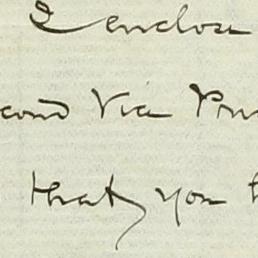 I enclose
cond Vice Pre
that you h